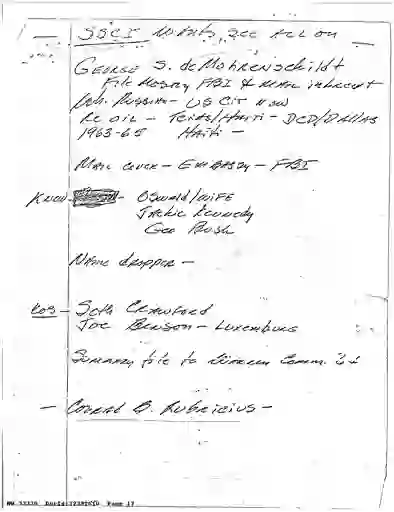 SSCI wants see all on
George S. deMohrenschildt
File mostly FBI & mail intercept
Russian - US Cit now
Re oil - Texas/Haiti - DCD/Dallas
1963-65 Haiti -
Mail cover - Embassy - FBI
Knew - Oswald/wife
Jackie Kennedy
Geo Bush
Name dropper -
Seth Crawford
Joe Benson - Luxemburg
Summary file to Warren Comm. 64
- Conrad B. Rubricius -
Page 17